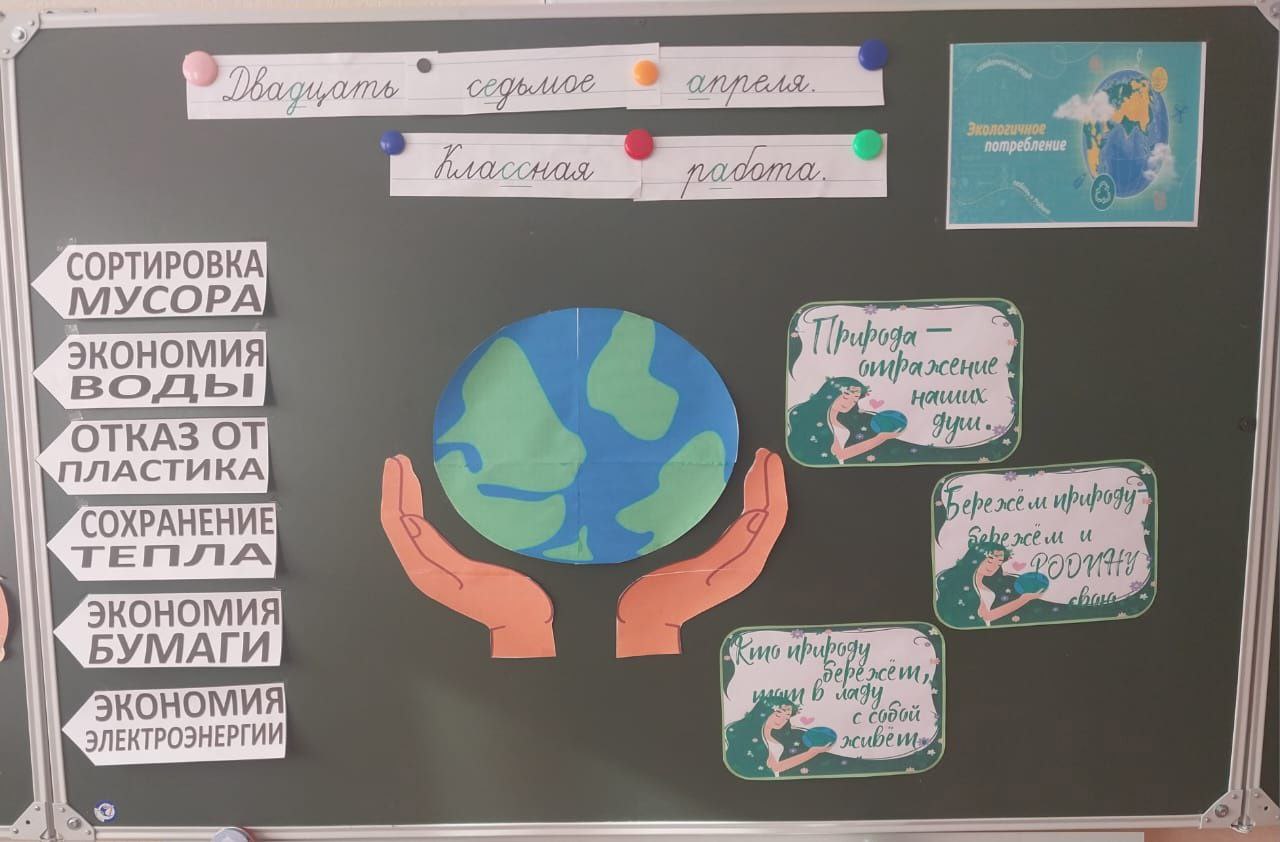 Двадцать седьмое апреля.
Классная работа.
Экологичное
потребление
СОРТИРОВКА
МУСОРА
ЭКОНОМИЯ
ВОДЫ
ОТКАЗ ОТ
ПЛАСТИКА
СОХРАНЕНИЕ
ТЕПЛА
ЭКОНОМИЯ
БУМАГИ
ЭКОНОМИЯ
ЭЛЕКТРОЭНЕРГИИ
Природа —
отражение
наших
душ.
Бережём природу-
бережём и
РОДИНУ
свою
Кто природу
бережёт,
тот в ладу
с собой
живёт